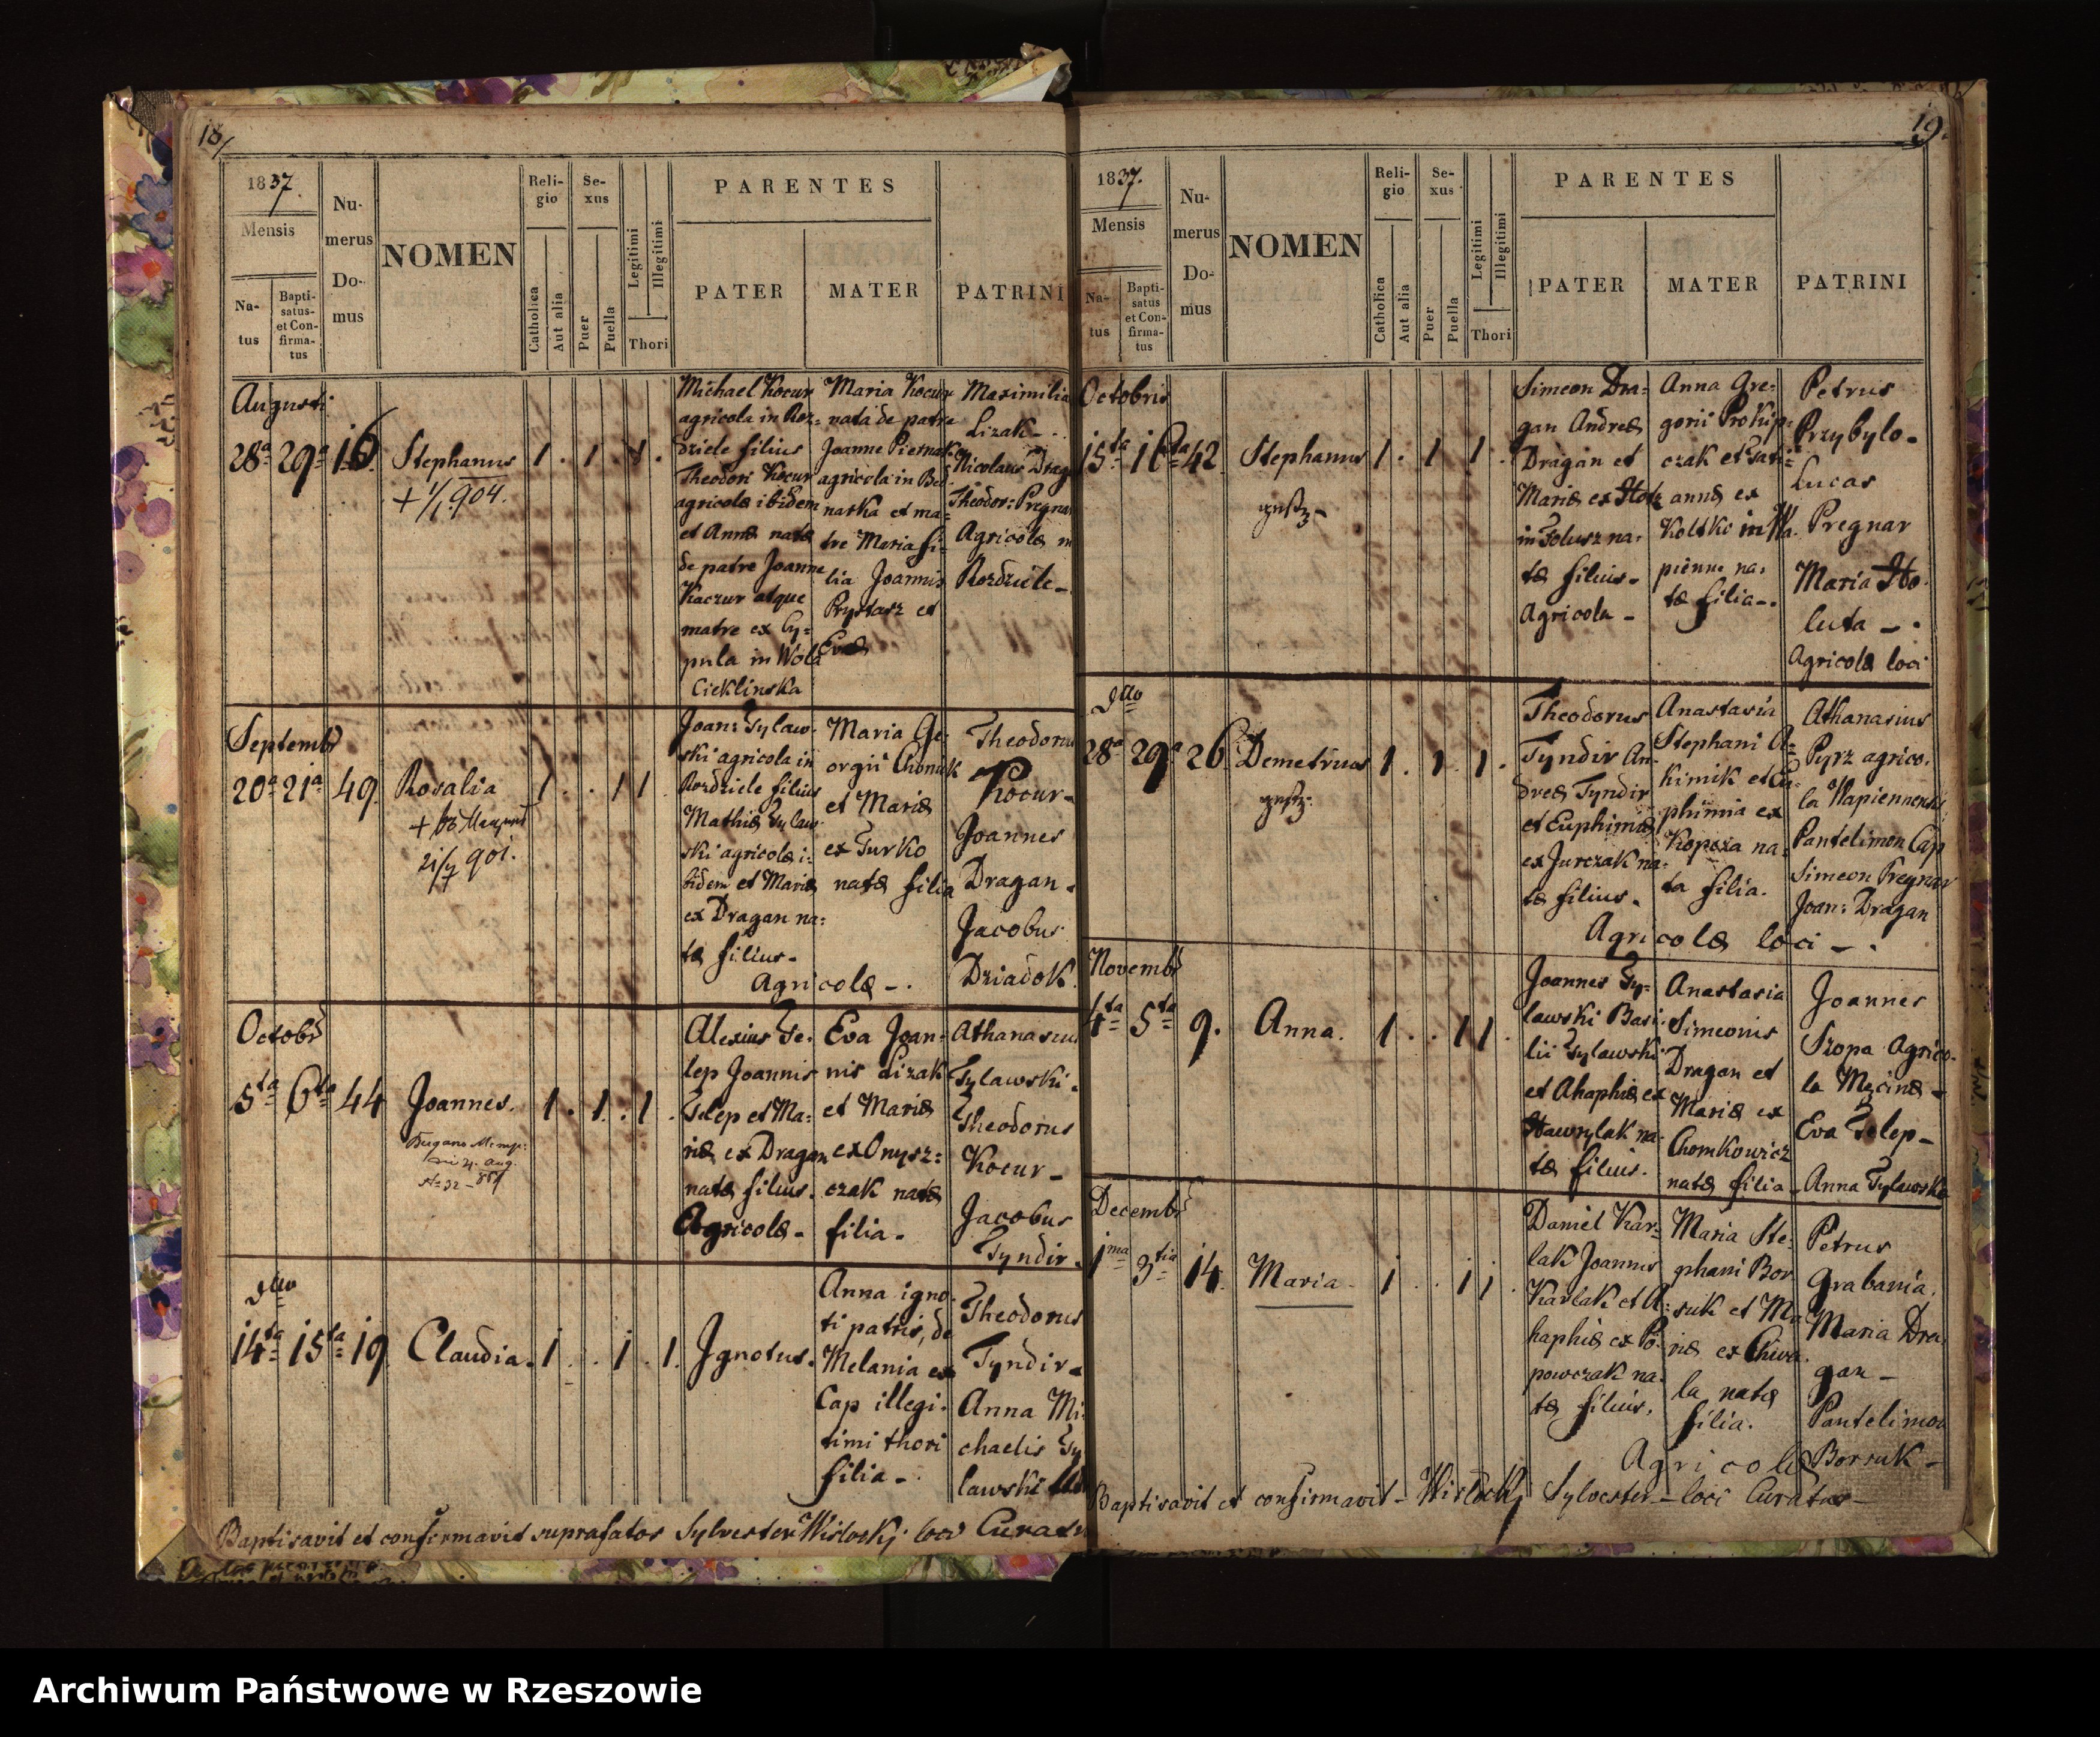 18/
1837.
Mensis
Na-
tus
Bapti-
satus-
et Con-
firma-
tus
Nu-
merus
Do-
mus
NOMEN
Reli-
gio
Catholica
Aut alia
Se-
xus
Puer
Puella
Legitimi
Illegitimi
Thori
PARENTES
PATER
MATER
PATRINI
Augusti
28a 29a 16. Stephanus 1 . 1 . 1 .
+ 1/1 904.
Michael Kocur
agricola in Roz=
dziele filius
Theodori Kocur
agricolæ ibidem
et Annæ natæ
de patre Joanne
Kaczur atque
matre ex Cy=
pula in Wola
Cieklinska
Maria Kocur
nata de patre
Joanne Piernak
agricola in Bed=
narka et ma=
tre Maria fi=
lia Joannis
Prystasz et
Evæ
Maximilia
Lizak - .
Nicolaus Drag
Theodor: Pregna
Agricolæ in
Rozdziele -
Septembr
20a 21a 49. Rosalia 1 . . 1 1
21/7 901.
Joan: Tylaw=
ski agricola in
Rozdziele filius
Mathiæ Tylaw=
ski agricolæ i=
bidem et Mariæ
ex Dragan na:
tæ filius -
Agricolæ - .
Maria Ge=
orgii Chomik
et Mariæ
ex Turko
natæ filia
Theodorus
Kocur -
Joannes
Dragan -
Jacobus
Dziadok.
Octobr
5ta 6ta 44 Joannes. 1 . 1 . 1 .
Alexius Te=
lep Joannis
Telep et Ma=
riæ ex Dragan
natæ filius.
Agricolæ -
Eva Joan=
nis Lizak
et Mariæ
ex Onysz=
czak natæ
filia -
Athanasius
Tylawski -
Theodorus
Kocur -
Jacobus
Tyndir -
dtto
14ta 15ta 19 Claudia. 1 . . 1 . 1.
Ignotus.
Anna igno=
ti patris, de
Melania ex
Cap illegi=
timi thori
filia - .
Theodorus
Tyndir -
Anna Mi
chaelis Ty
lawski
Baptisavit et confirmavit suprafatos Sylvester Wislocky loci Curatus
19.
1837.
Mensis
Na-
tus
Bapti-
satus
et Con-
firma-
tus
Nu-
merus
Do-
mus
NOMEN
Reli-
gio
Catholica
Aut alia
Se-
xus
Puer
Puella
Legitimi
Illegitimi
Thori
PARENTES
PATER
MATER
PATRINI
Octobris
15ta 16ta 42 Stephanus 1 . 1 1 .
Simeon Dra=
gan Andreæ
Dragan et
Mariæ ex
in Folusz na=
tæ filius -
Agricola -
Anna Gre=
gorii Prokip=
czak et Tati=
annæ ex
Koltko in Wa=
pienne na=
tæ filia - .
Petrus
Przybylo -
Lucas
Pregnar
Maria Ho=
luta - .
Agricolæ loci
dtto
28a 29a 26. Demetrius 1 . 1 . 1 .
Theodorus
Tyndir An=
dreæ Tyndir
et Euphimiæ
ex Jurczak na=
tæ filius -
Anastasia
Stephani A=
kimik et Eu=
phimia ex
Kopcza na=
ta filia.
Agricolæ loci - .
Athanasius
Pyrz agrico=
la Wapiennensis
Pantelimon Cap
Simeon Pregnar
Joan: Dragan
Novembr
4ta 5ta 9. Anna. 1 . . 1 1 .
Joannes Ty=
lawski Basi=
lii Tylawski
et Ahaphiæ ex
Hawrylak na=
tæ filius.
Anastasia
Simeonis
Dragan et
Mariæ ex
Chomkowicz
natæ filia -
Joannes
Szopa Agrico=
la Męcinæ -
Eva Telep -
Anna Tylawska
Decembr
1ma 3tia 14. Maria - 1 . . 1 1 .
Daniel Kar=
lak Joannis
Karlak et A=
haphiæ ex Po=
powczak na=
tæ filius,
Maria Ste=
phani Bor
suk et Ma
riæ ex Chwa=
la natæ
filia.
Petrus
Grabania,
Maria Dra
gan -
Pantelimon
Borsuk -
Agricolæ
Baptisavit et confirmavit - Wislocky Sylvester - loci Curatus -
Archiwum Państwowe w Rzeszowie